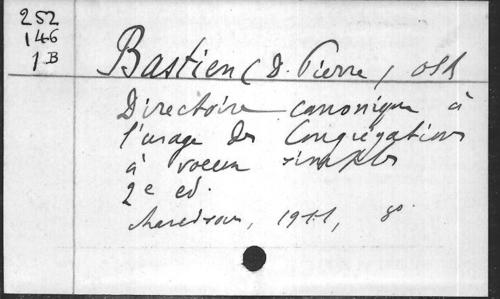 252
146
1 B
Bastien (D. Pierre) OSB
Directoire canonique à
l'usage des Congrégations
à voeux simples
2e ed.
Maredsous, 1911, 8o